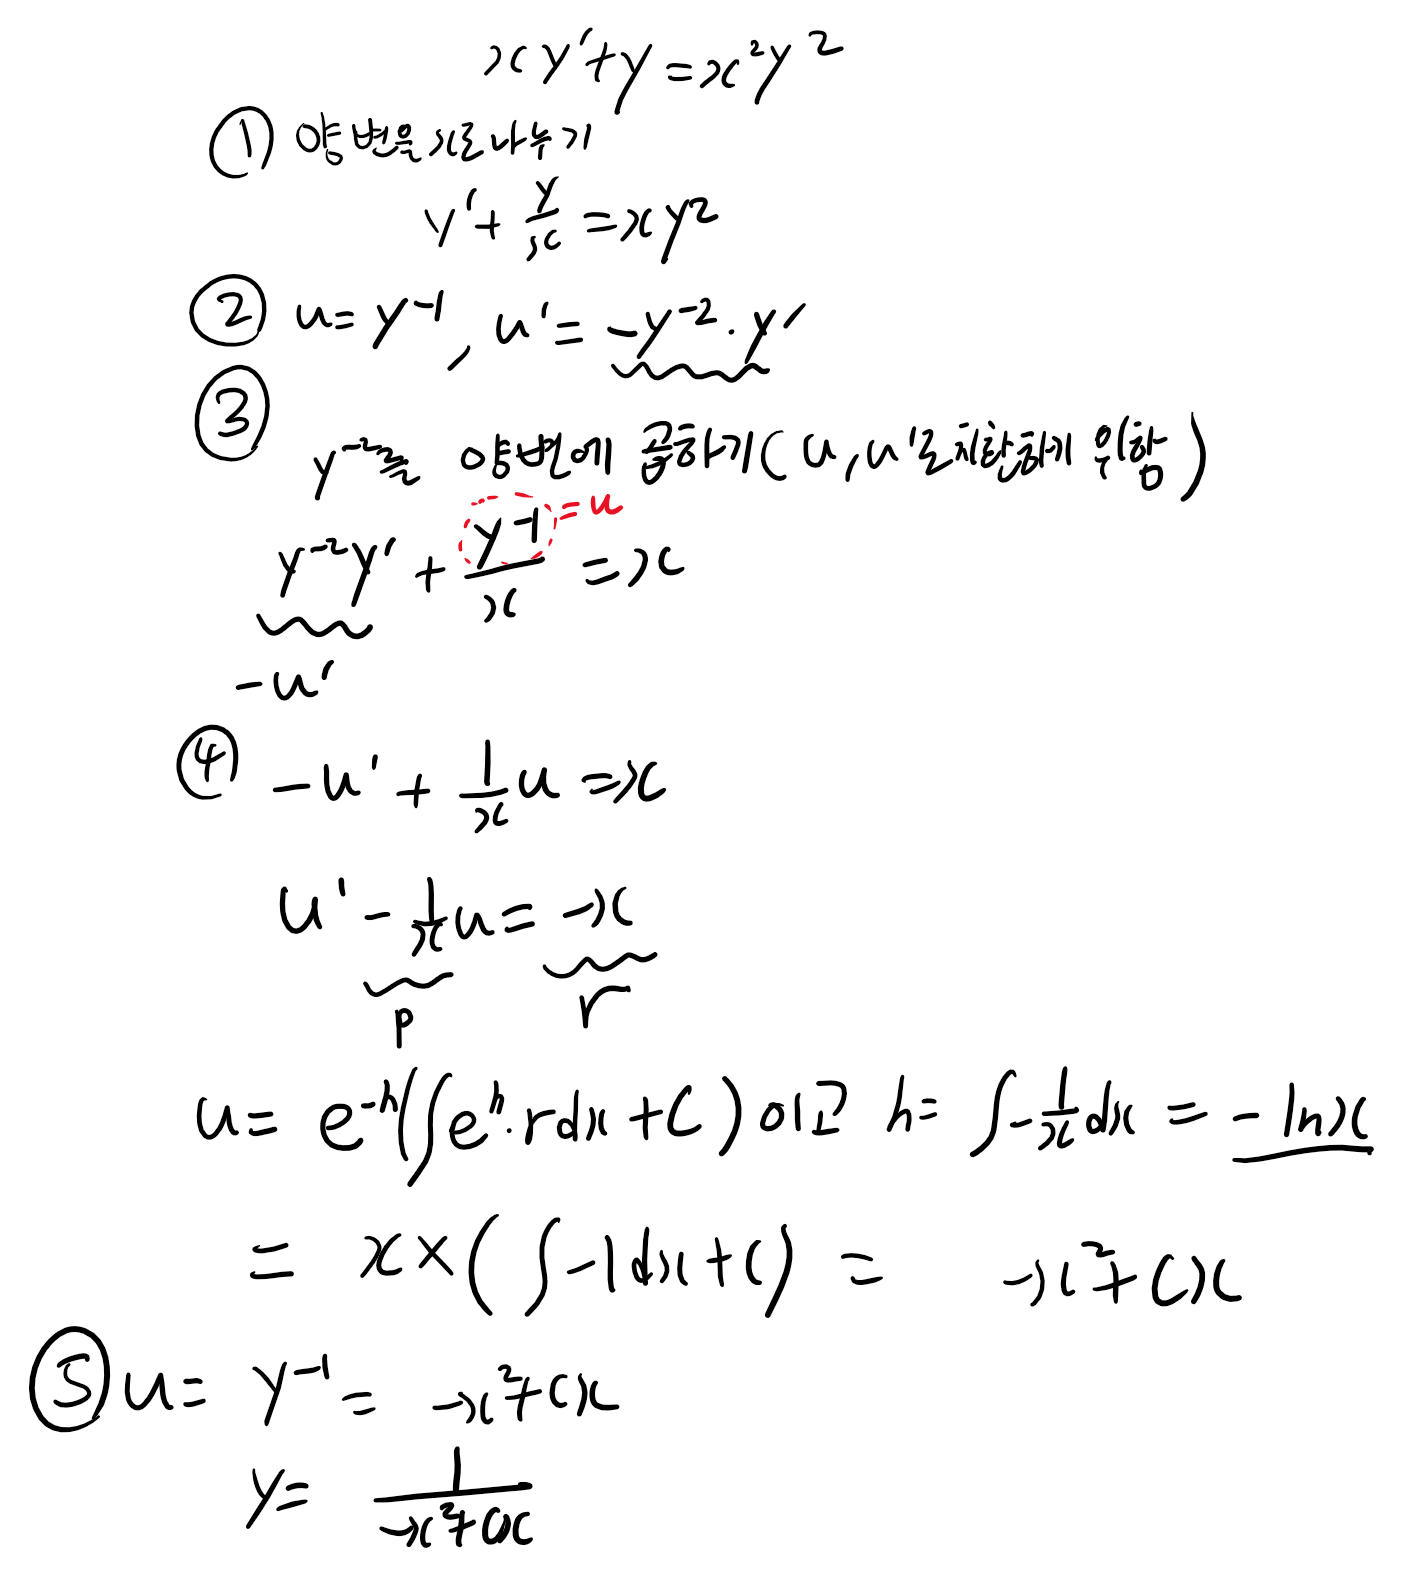 xy′+y=x²y²
① 양변을 x로 나누기
y′+y/x=xy²
② u=y⁻¹, u′=-y⁻²·y′
③
y⁻²를 양변에 곱하기(u,u′로 치환하기 위함)
y⁻²y′+y⁻¹/x=x
=u
-u′
④ -u′+1/x u=x
u′-1/x u=-x
p r
u=e⁻ʰ(∫eʰ·rdx+C)이고 h=∫-1/x dx=-lnx
=x×(∫-1dx+C)= -x²+Cx
⑤ u=y⁻¹=-x²+Cx
y=1/(-x²+Cx)